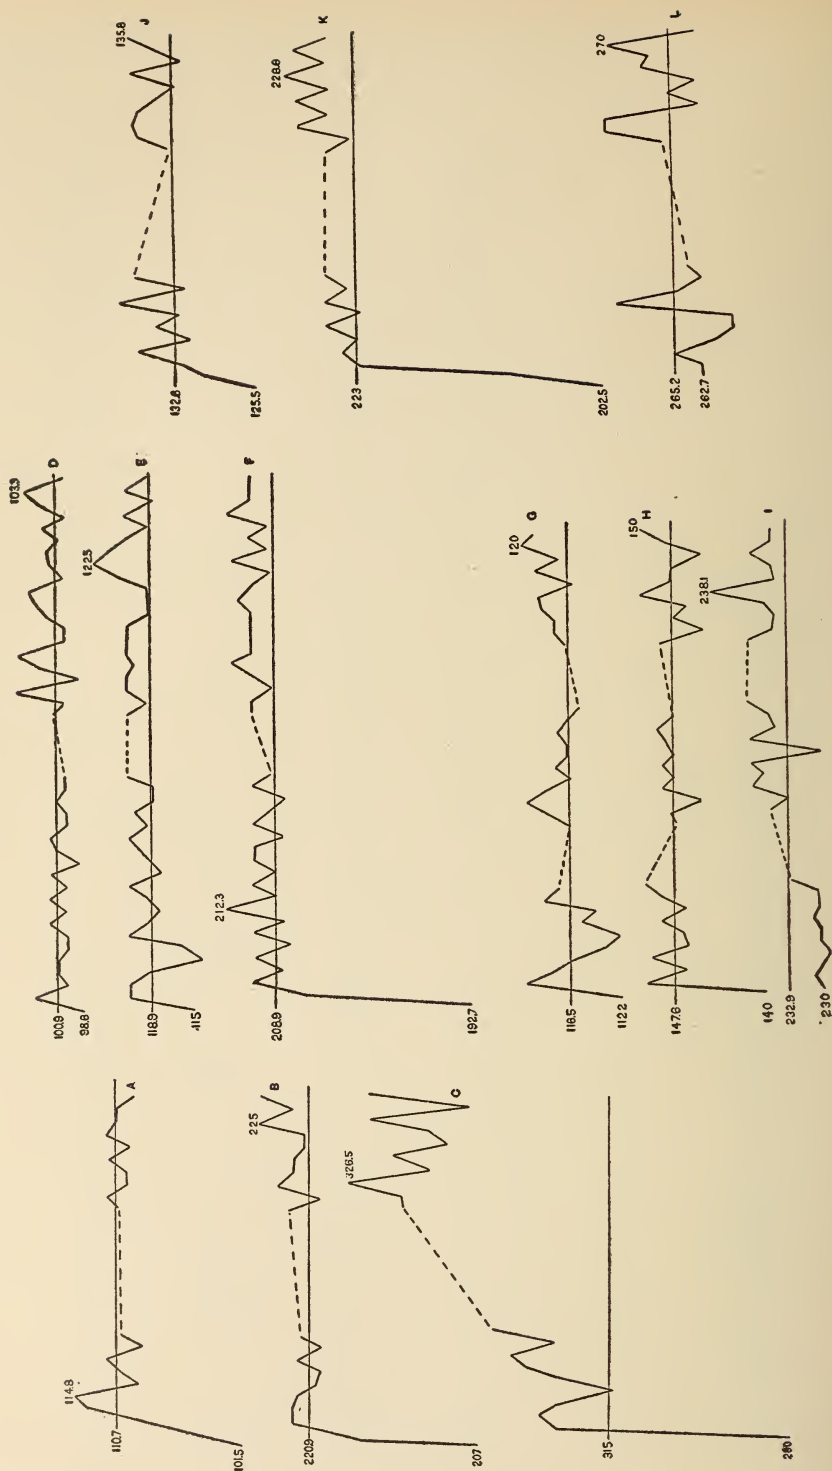 114.8
110.7
101.5
A
225
220.9
207
B
326.5
315
280
C
103.3
100.9
98.8
D
122.5
118.9
115
E
212.3
208.9
192.7
F
120
116.5
112.2
G
150
147.6
140
H
238.1
232.9
230
I
135.8
132.8
125.5
J
228.8
223
202.5
K
270
265.2
262.7
L